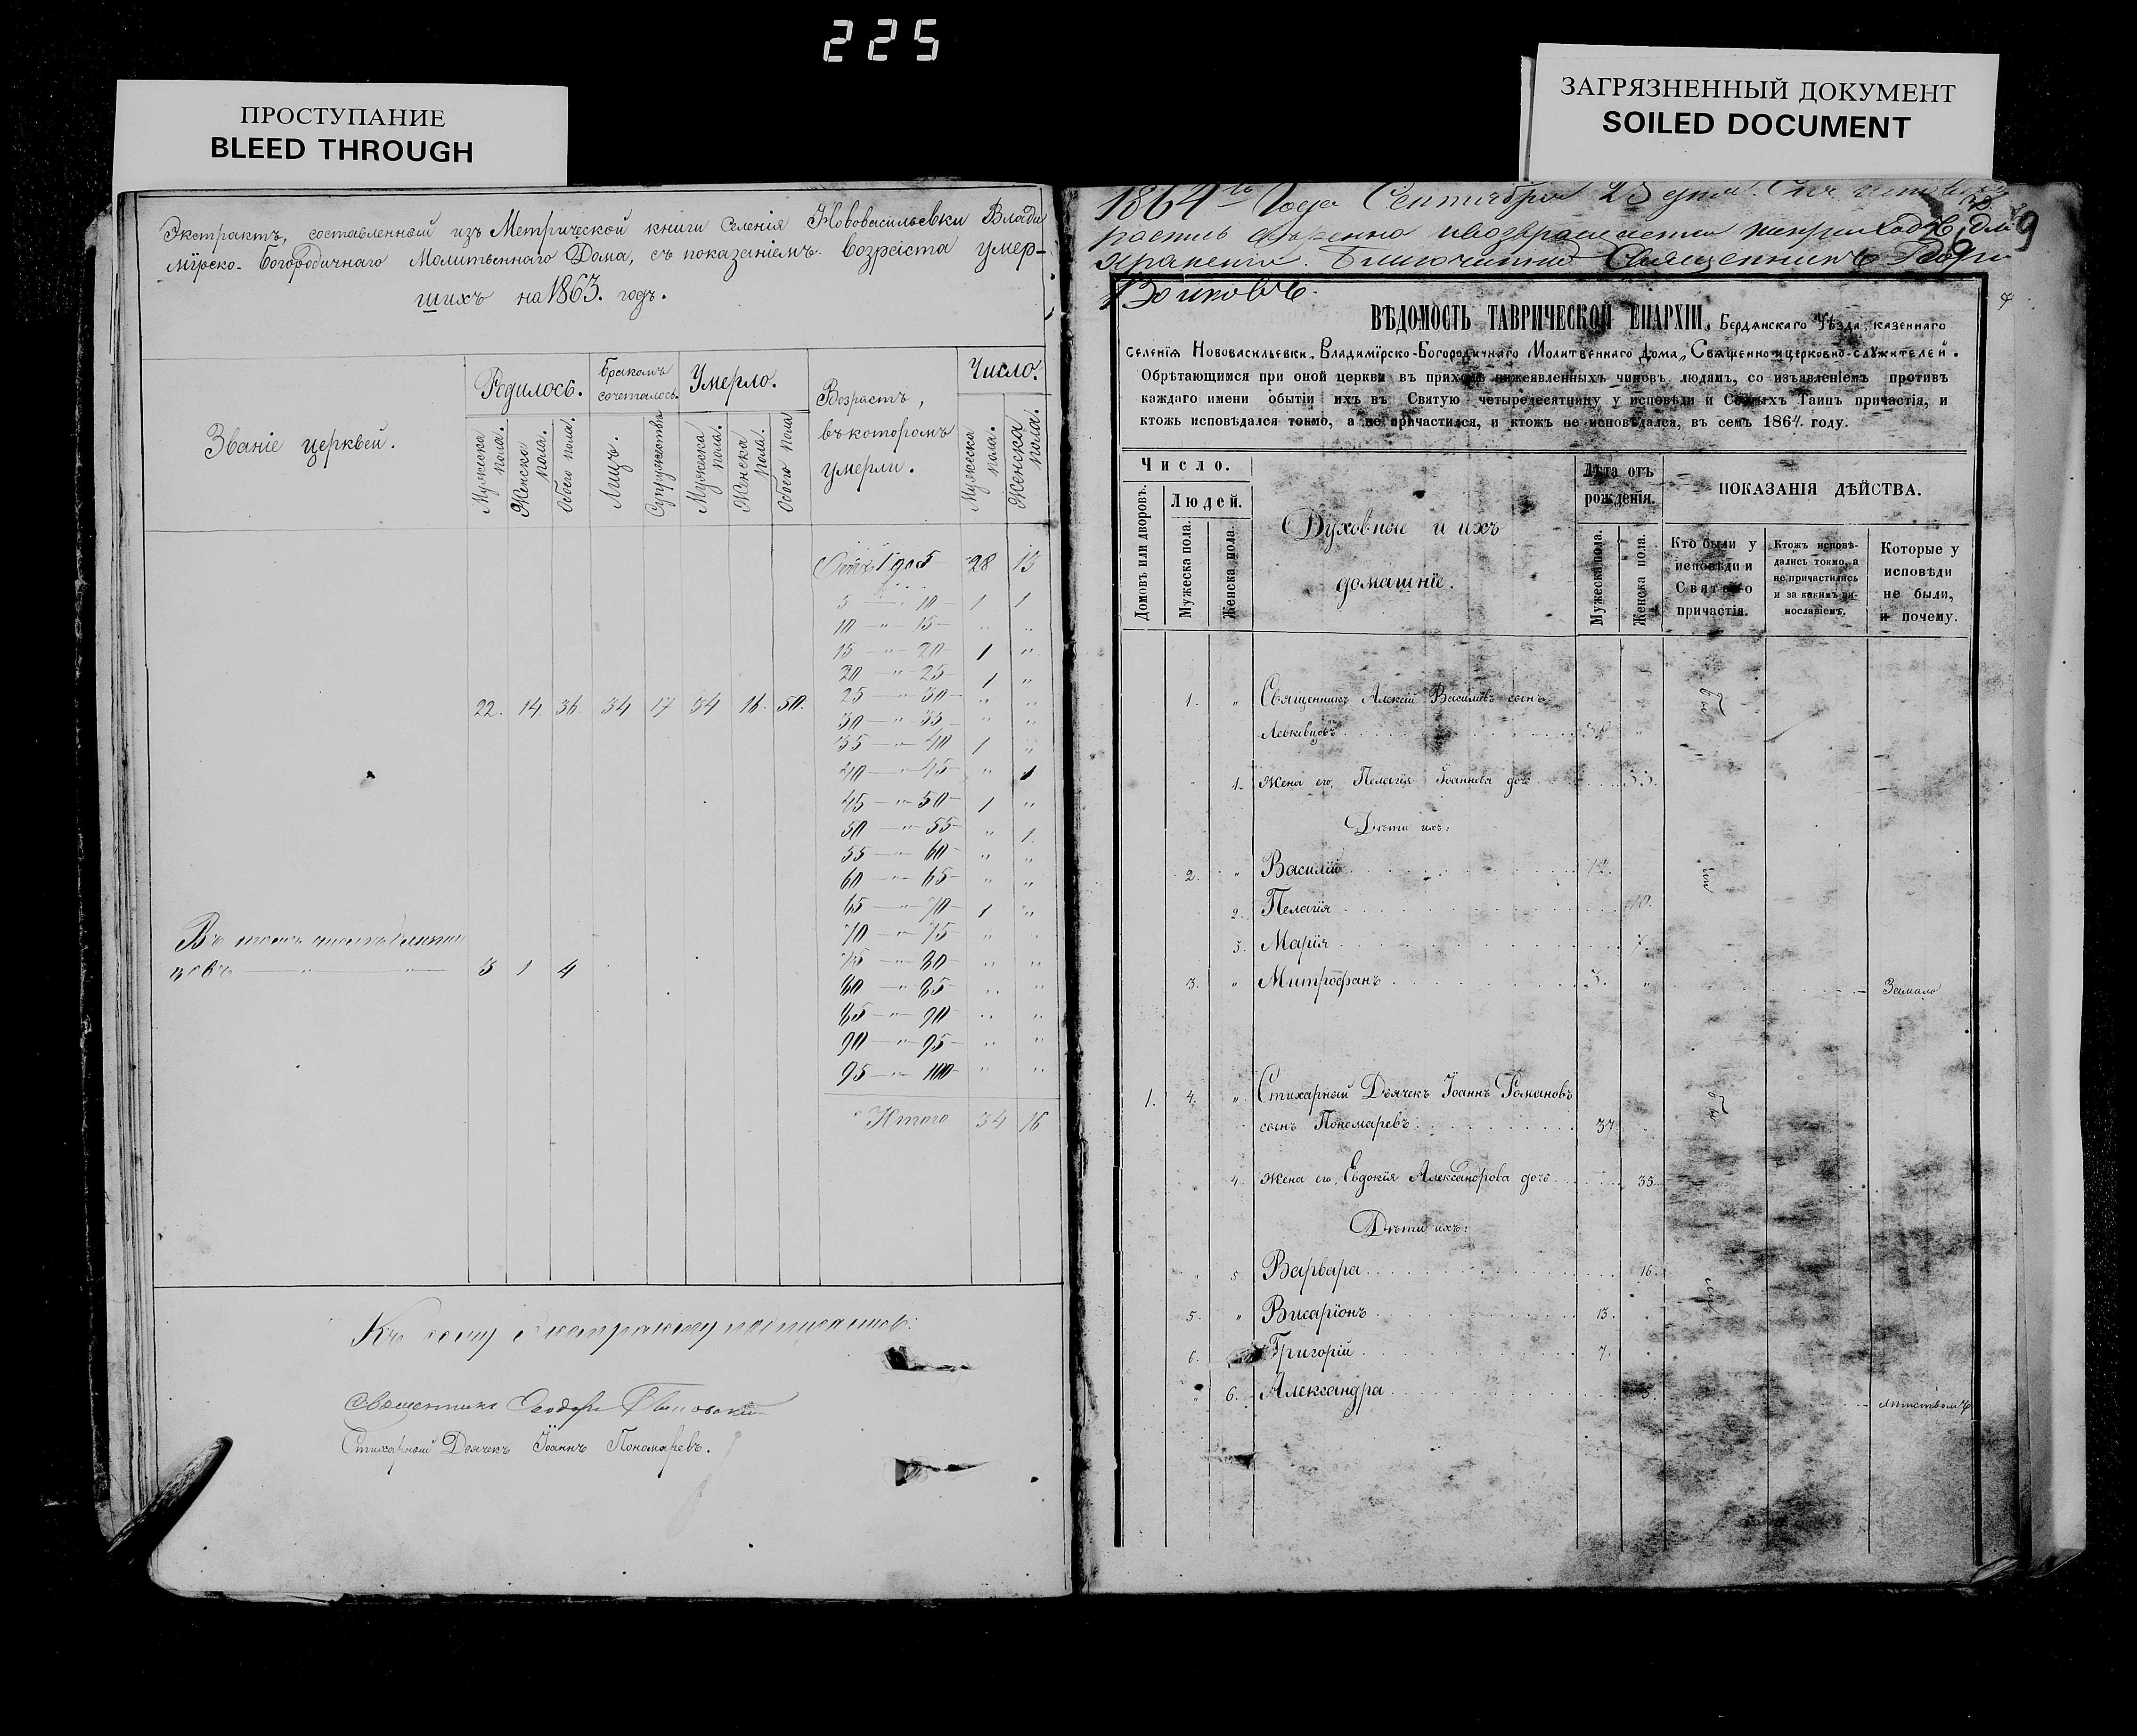 225
ПРОСТУПАНИЕ
BLEED THROUGH
ЗАГРЯЗНЕННЫЙ ДОКУМЕНТ
SOILED DOCUMENT
Экстрактъ, составленный изъ Метрической книги Селенія Нововасильевки Влади
мірско-Богородичнаго Молитвеннаго Дома, съ показаніемъ возраста умер-
шихъ на 1863. годъ.
Званіе церквей.
Родилось.
Мужеска пола.
Женска пола.
Обоего пола.
Бракомъ сочеталось.
Лицъ.
Супружества
Умерло.
Мужеска пола.
Женска пола.
Обоего пола
Возрастъ,
въ которомъ
умерли.
Число.
Мужеска пола.
Женска пола.
Отъ 1 до 5 28 13
5 — " — 10 1 1
10 — " — 15 " "
15 — " — 20 1 "
20 — " — 25 1 "
25 — " — 30 " "
22. 14. 36. 34 17 34 16. 50.
30 — " — 35 " "
35 — " — 40 1 "
40 — " — 45 " 1
45 — " — 50 1 "
50 — " — 55 " 1.
55 — " — 60 " "
60 — " — 65 " "
65 — " — 70 1 "
70 — " — 75 " "
75 — " — 80 " "
80 — " — 85 " "
85 — " — 90 " "
90 — " — 95 " "
95 — " — 100 " "
Въ томъ числѣ
3 1 4
Итого 34 16
Къ сему экстракту подписались:
Священникъ Ѳеодоръ
Стихарный Дьячекъ Іоаннъ Пономаревъ.
1864го Года Сентября 23 дня.
хранения. Благочинный Священникъ
9
ВѢДОМОСТЬ ТАВРИЧЕСКОЙ ЕПАРХІИ, Бердянскаго Уѣзда, казеннаго
селенія Нововасильевки, Владимірско-Богородичнаго Молитвеннаго Дома, Священно и церковно-служителей.
Обрѣтающимся при оной церкви въ приходѣ нижеявленныхъ чиновъ людямъ, со изъявленіемъ противъ
каждаго имени обытіи ихъ въ Святую четыредесятницу у исповѣди и Святыхъ Таинъ причастія, и
ктожъ исповѣдался токмо, а не причастился, и ктожъ не исповѣдался, въ семъ 1864. году.
Число.
Домовъ или дворовъ.
Людей.
Мужеска пола.
Женска пола.
Духовные и ихъ
домашніе.
Лѣта отъ
рожденія.
Мужеска пола.
Женска пола.
ПОКАЗАНІЯ ДѢЙСТВА.
Кто были у
исповѣди и
Святаго
причастія.
Ктожъ исповѣ-
дались токмо, а
не причастились
и за какимъ ви-
нословіемъ.
Которые у
исповѣди
не были,
и почему.
1. " Священникъ Алексій Василіевъ сынъ
1. Жена его, Пелагія Іоаннова дочь 33.
Дѣти ихъ:
2. " Василій 12.
2. Пелагія 10.
3. Марія 7.
3. " Митрофанъ 3. " Замало
1. 4. " Стихарный Дьячекъ Іоаннъ Романовъ
сынъ Пономаревъ 37
4. Жена его, Евдокія Александрова дочь 35
Дѣти ихъ:
5 Варвара 16.
5. " Висаріонъ 13.
6. Григорій 7.
6. Александра 3